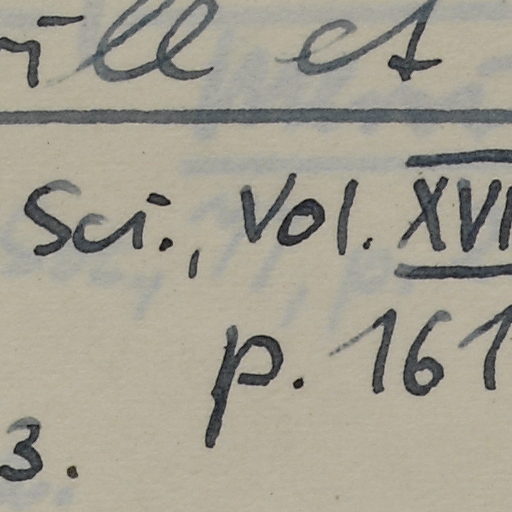 ill et
Sci., Vol. XVI
p. 161
3.